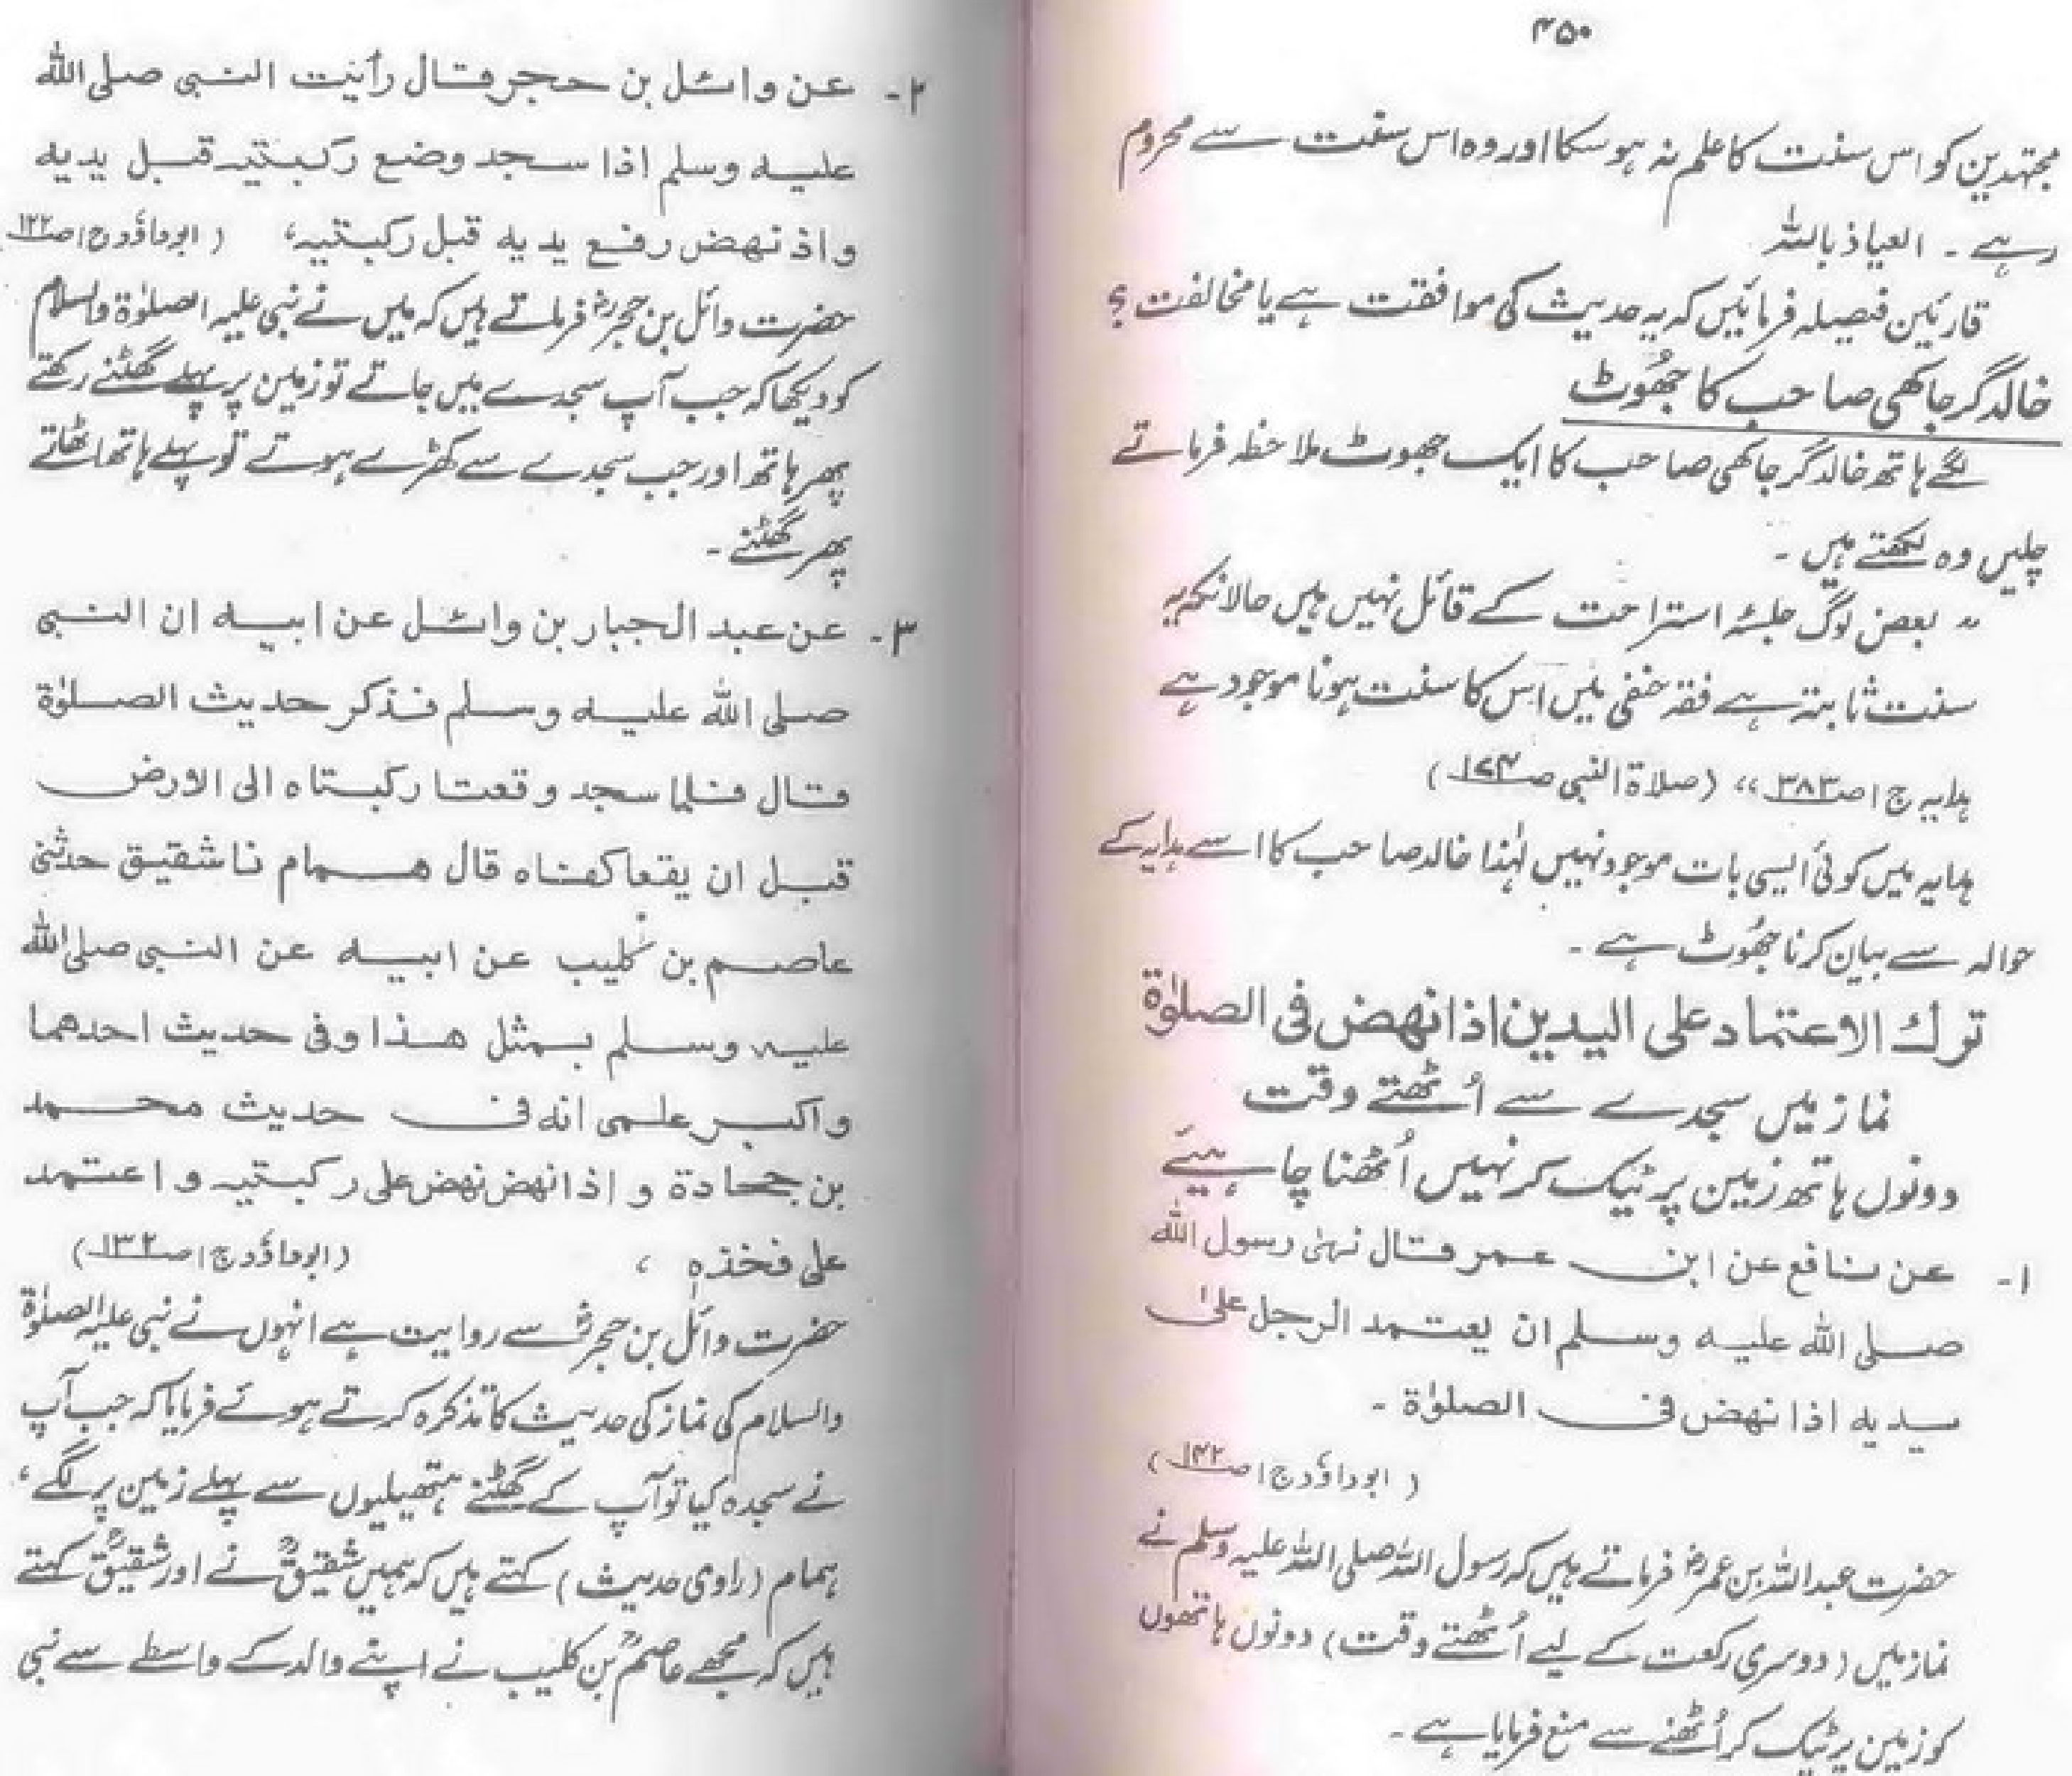 ۴۵۰
مجتہدین کو اس سنت کا علم نہ ہو سکا اور وہ اس سنت سے محروم
رہے ۔ العیاذ باللہ
قارئین فیصلہ فرمائیں کہ یہ حدیث کی موافقت ہے یا مخالفت ؟
خالد گرجاکھی صاحب کا جھُوٹ
لگے ہاتھ خالد گرجاکھی صاحب کا ایک جھوٹ ملاحظہ فرماتے
چلیں وہ لکھتے ہیں ۔
" بعض لوگ جلسۂ استراحت کے قائل نہیں ہیں حالانکہ یہ
سنت ثابتہ ہے فقہ حنفی میں اس کا سنت ہونا موجود ہے
ہدایہ ج۱ ص۳۸۳ " (صلاۃ النبی ص۱۷۴)
ہدایہ میں کوئی ایسی بات موجود نہیں لہٰذا خالد صاحب کا اسے ہدایہ کے
حوالہ سے بیان کرنا جھُوٹ ہے ۔
ترك الاعتماد على اليدين اذا نهض فى الصلوٰة
نماز میں سجدے سے اُٹھتے وقت
دونوں ہاتھ زمین پر ٹیک کر نہیں اُٹھنا چاہیئے
۱- عن نافع عن ابن عمر قال نهىٰ رسول الله
صلى الله عليه وسلم ان يعتمد الرجل علىٰ
يديه اذا نهض فى الصلوٰة ۔
(ابوداؤد ج۱ ص۱۴۲)
حضرت عبداللہ بن عمرؓ فرماتے ہیں کہ رسول اللہ صلی اللہ علیہ وسلم نے
نماز میں (دوسری رکعت کے لیے اُٹھتے وقت) دونوں ہاتھوں
کو زمین پر ٹیک کر اُٹھنے سے منع فرمایا ہے ۔
۲- عن وائل بن حجر قال رأيت النبى صلى الله
عليه وسلم اذا سجد وضع ركبتيه قبل يديه
واذ نهض رفع يديه قبل ركبتيه، (ابوداؤد ج۱ ص۱۲۲
حضرت وائل بن حجرؓ فرماتے ہیں کہ میں نے نبی علیہ الصلوٰۃ والسلام
کو دیکھا کہ جب آپ سجدے میں جاتے تو زمین پر پہلے گھٹنے رکھتے
پھر ہاتھ اور جب سجدے سے کھڑے ہوتے تو پہلے ہاتھ اٹھاتے
پھر گھٹنے ۔
۳- عن عبد الجبار بن وائل عن ابيه ان النبى
صلى الله عليه وسلم فذكر حديث الصلوٰة
قال فلما سجد وقعتا ركبتاه الى الارض
قبل ان يقعا كفاه قال همام نا شقيق حدثنى
عاصم بن كليب عن ابيه عن النبى صلى الله
عليه وسلم بمثل هذا وفى حديث احدهما
واكبر علمى انه فى حديث محمد
بن جحادة واذا نهض نهض على ركبتيه واعتمد
على فخذه ، (ابوداؤد ج۱ ص۱۳۲)
حضرت وائل بن حجرؓ سے روایت ہے انہوں نے نبی علیہ الصلوٰۃ
والسلام کی نماز کی حدیث کا تذکرہ کرتے ہوئے فرمایا کہ جب آپ
نے سجدہ کیا تو آپ کے گھٹنے ہتھیلیوں سے پہلے زمین پر لگے،
ہمام (راوی حدیث) کہتے ہیں کہ ہمیں شقیقؒ نے اور شقیقؒ کہتے
ہیں کہ مجھے عاصمؒ بن کلیب نے اپنے والد کے واسطے سے نبی